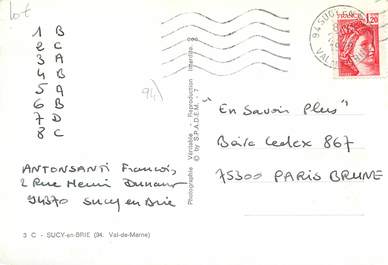 lot
1 B
2 C
3 A
4 B
5 A
6 B
7 D
8 C
94)
ANTONSANTI François
2 Rue Henri Dunant
94370 Sucy en Brie
3 C - SUCY-en-BRIE (94. Val-de-Marne)
Photographie Véritable - Reproduction interdite
© by S.P.A.D.E.M. - 7
94 SUCY
VAL
1,20
"En Savoir Plus"
Boîte Cedex 867
75300 PARIS BRUNE